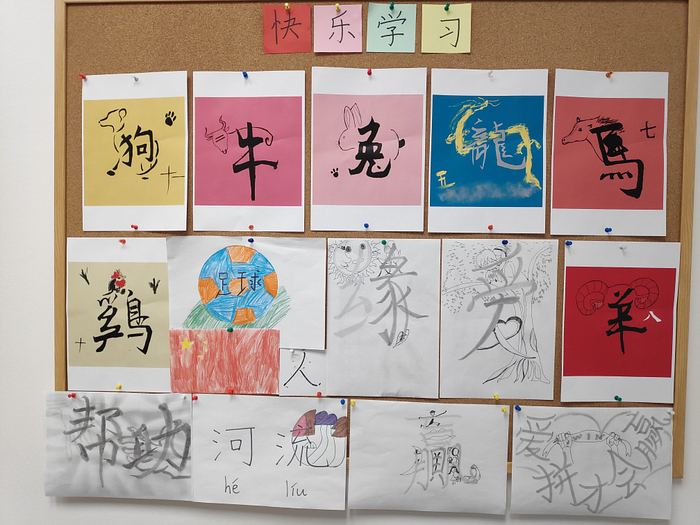 快乐学习
狗
十一
牛
兔
龍
五
馬
七
鷄
十
足球
人
缘
爱
羊
八
帮助
河流
hé líu
赢
爱拼才会赢